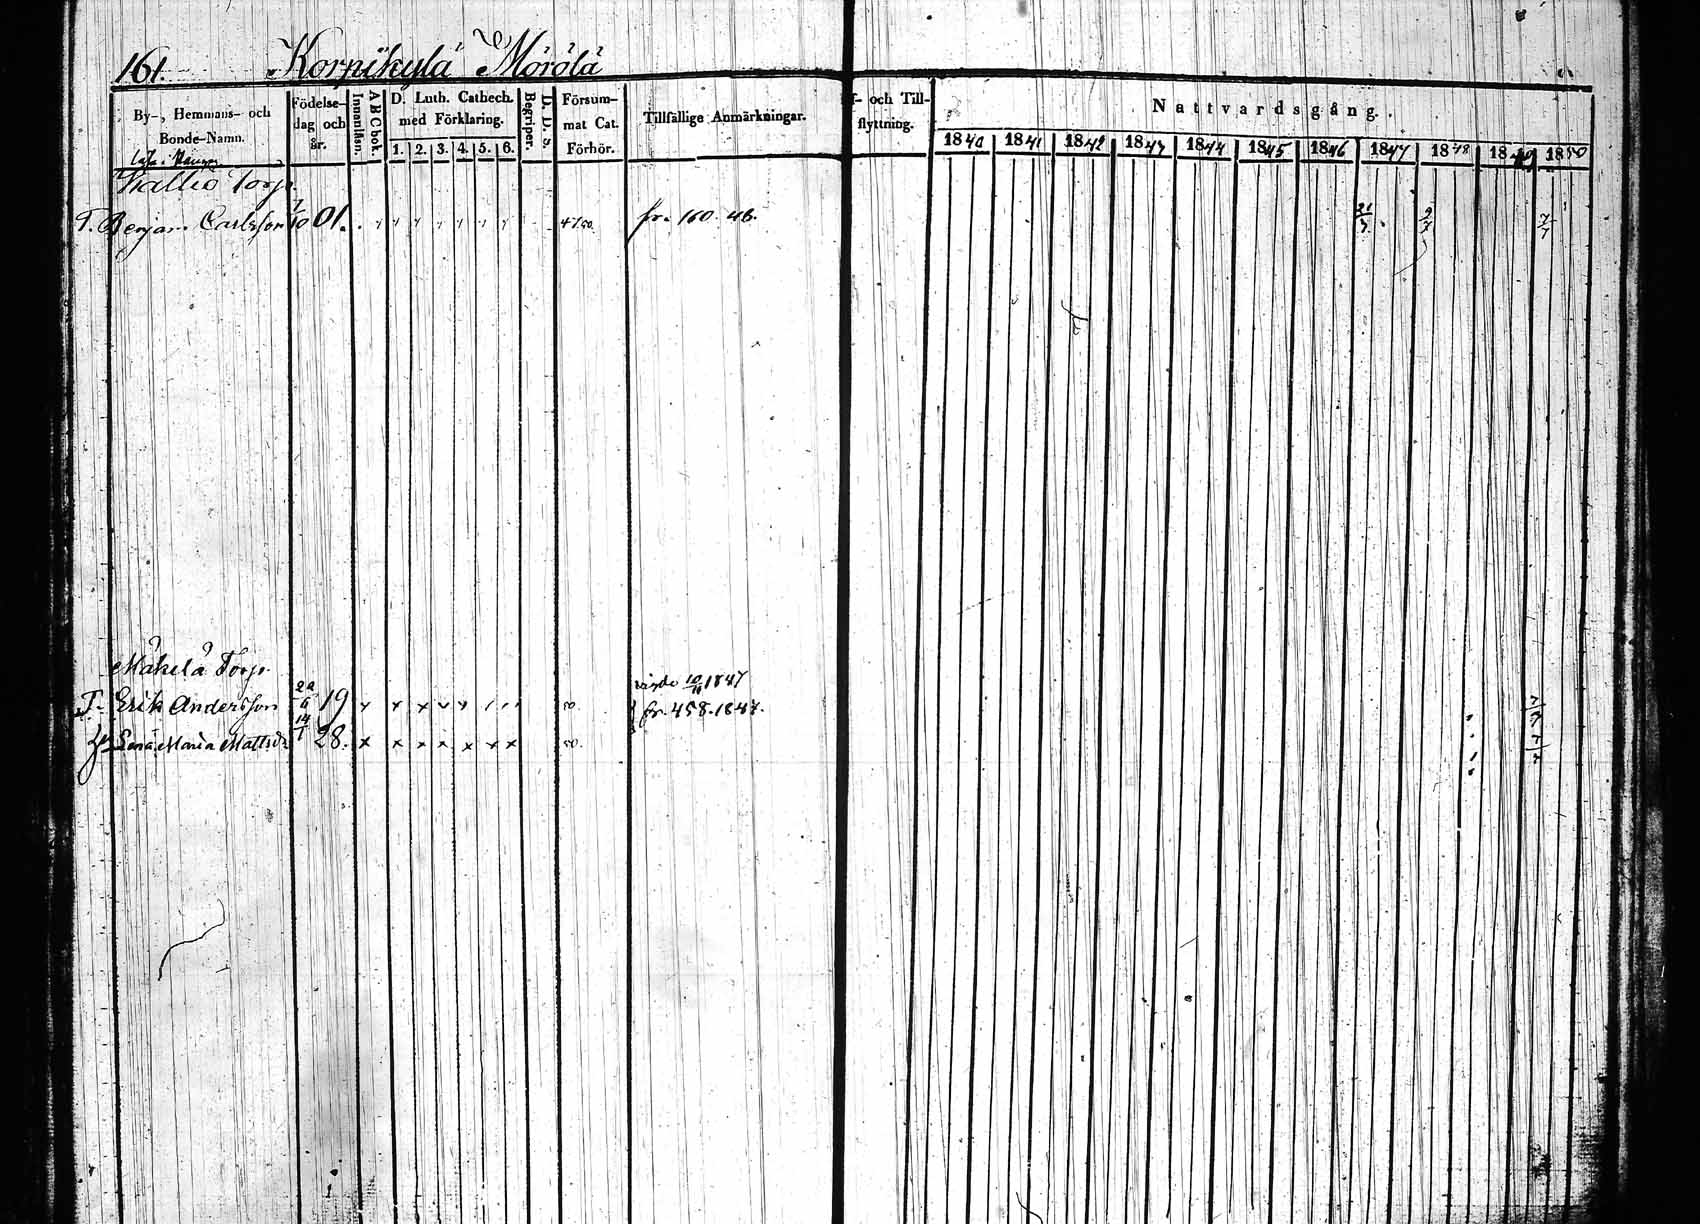 161 Korpikylä Mörölä
By-, Hemmans- och Bonde-Namn.
Födelse- dag och år.
Innanläsn.
A B C bok.
D. Luth. Cathech. med Förklaring.
1. 2. 3. 4. 5. 6.
Begriper.
D. D. S.
Försum- mat Cat. Förhör.
Tillfällige Anmärkningar.
f- och Till- flyttning.
Nattvardsgång.
1840 1841 1842 1843 1844 1845 1846 1847 1848 1849 1850
Kallio Torp.
T. Benjam Carlsson 7/10 01. 47.50. fr. 160. 46. 9/7 7/7
Mäkelä Torp
vigde 10/11 1847
T. Erik Andersson 19 x x x x x 50 fr. 458. 1847.
Lena Maria Mattsdr 14/1 28. x x x x x x x 50.